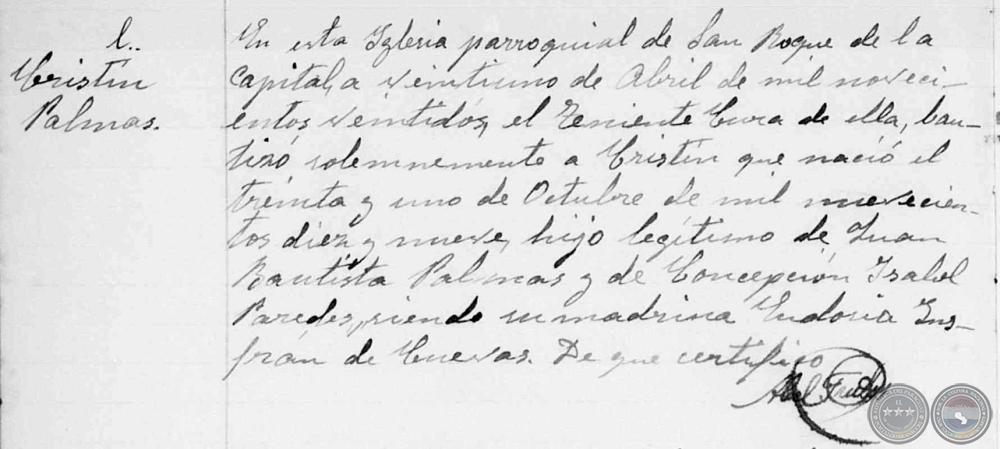 L..
Cristín
Palmas.
En esta Iglesia parroquial de San Roque de la
Capital, a veintiuno de Abril de mil noveci-
entos veintidós, el Teniente Cura de ella, bau-
tizó solemnemente a Cristín que nació el
treinta y uno de Octubre de mil nuevecien-
tos diez y nueve, hijo legítimo de Juan
Bautista Palmas y de Concepción Isabel
Paredes, siendo su madrina Eudosia Ins-
frán de Cuevas. De que certifico
Abel